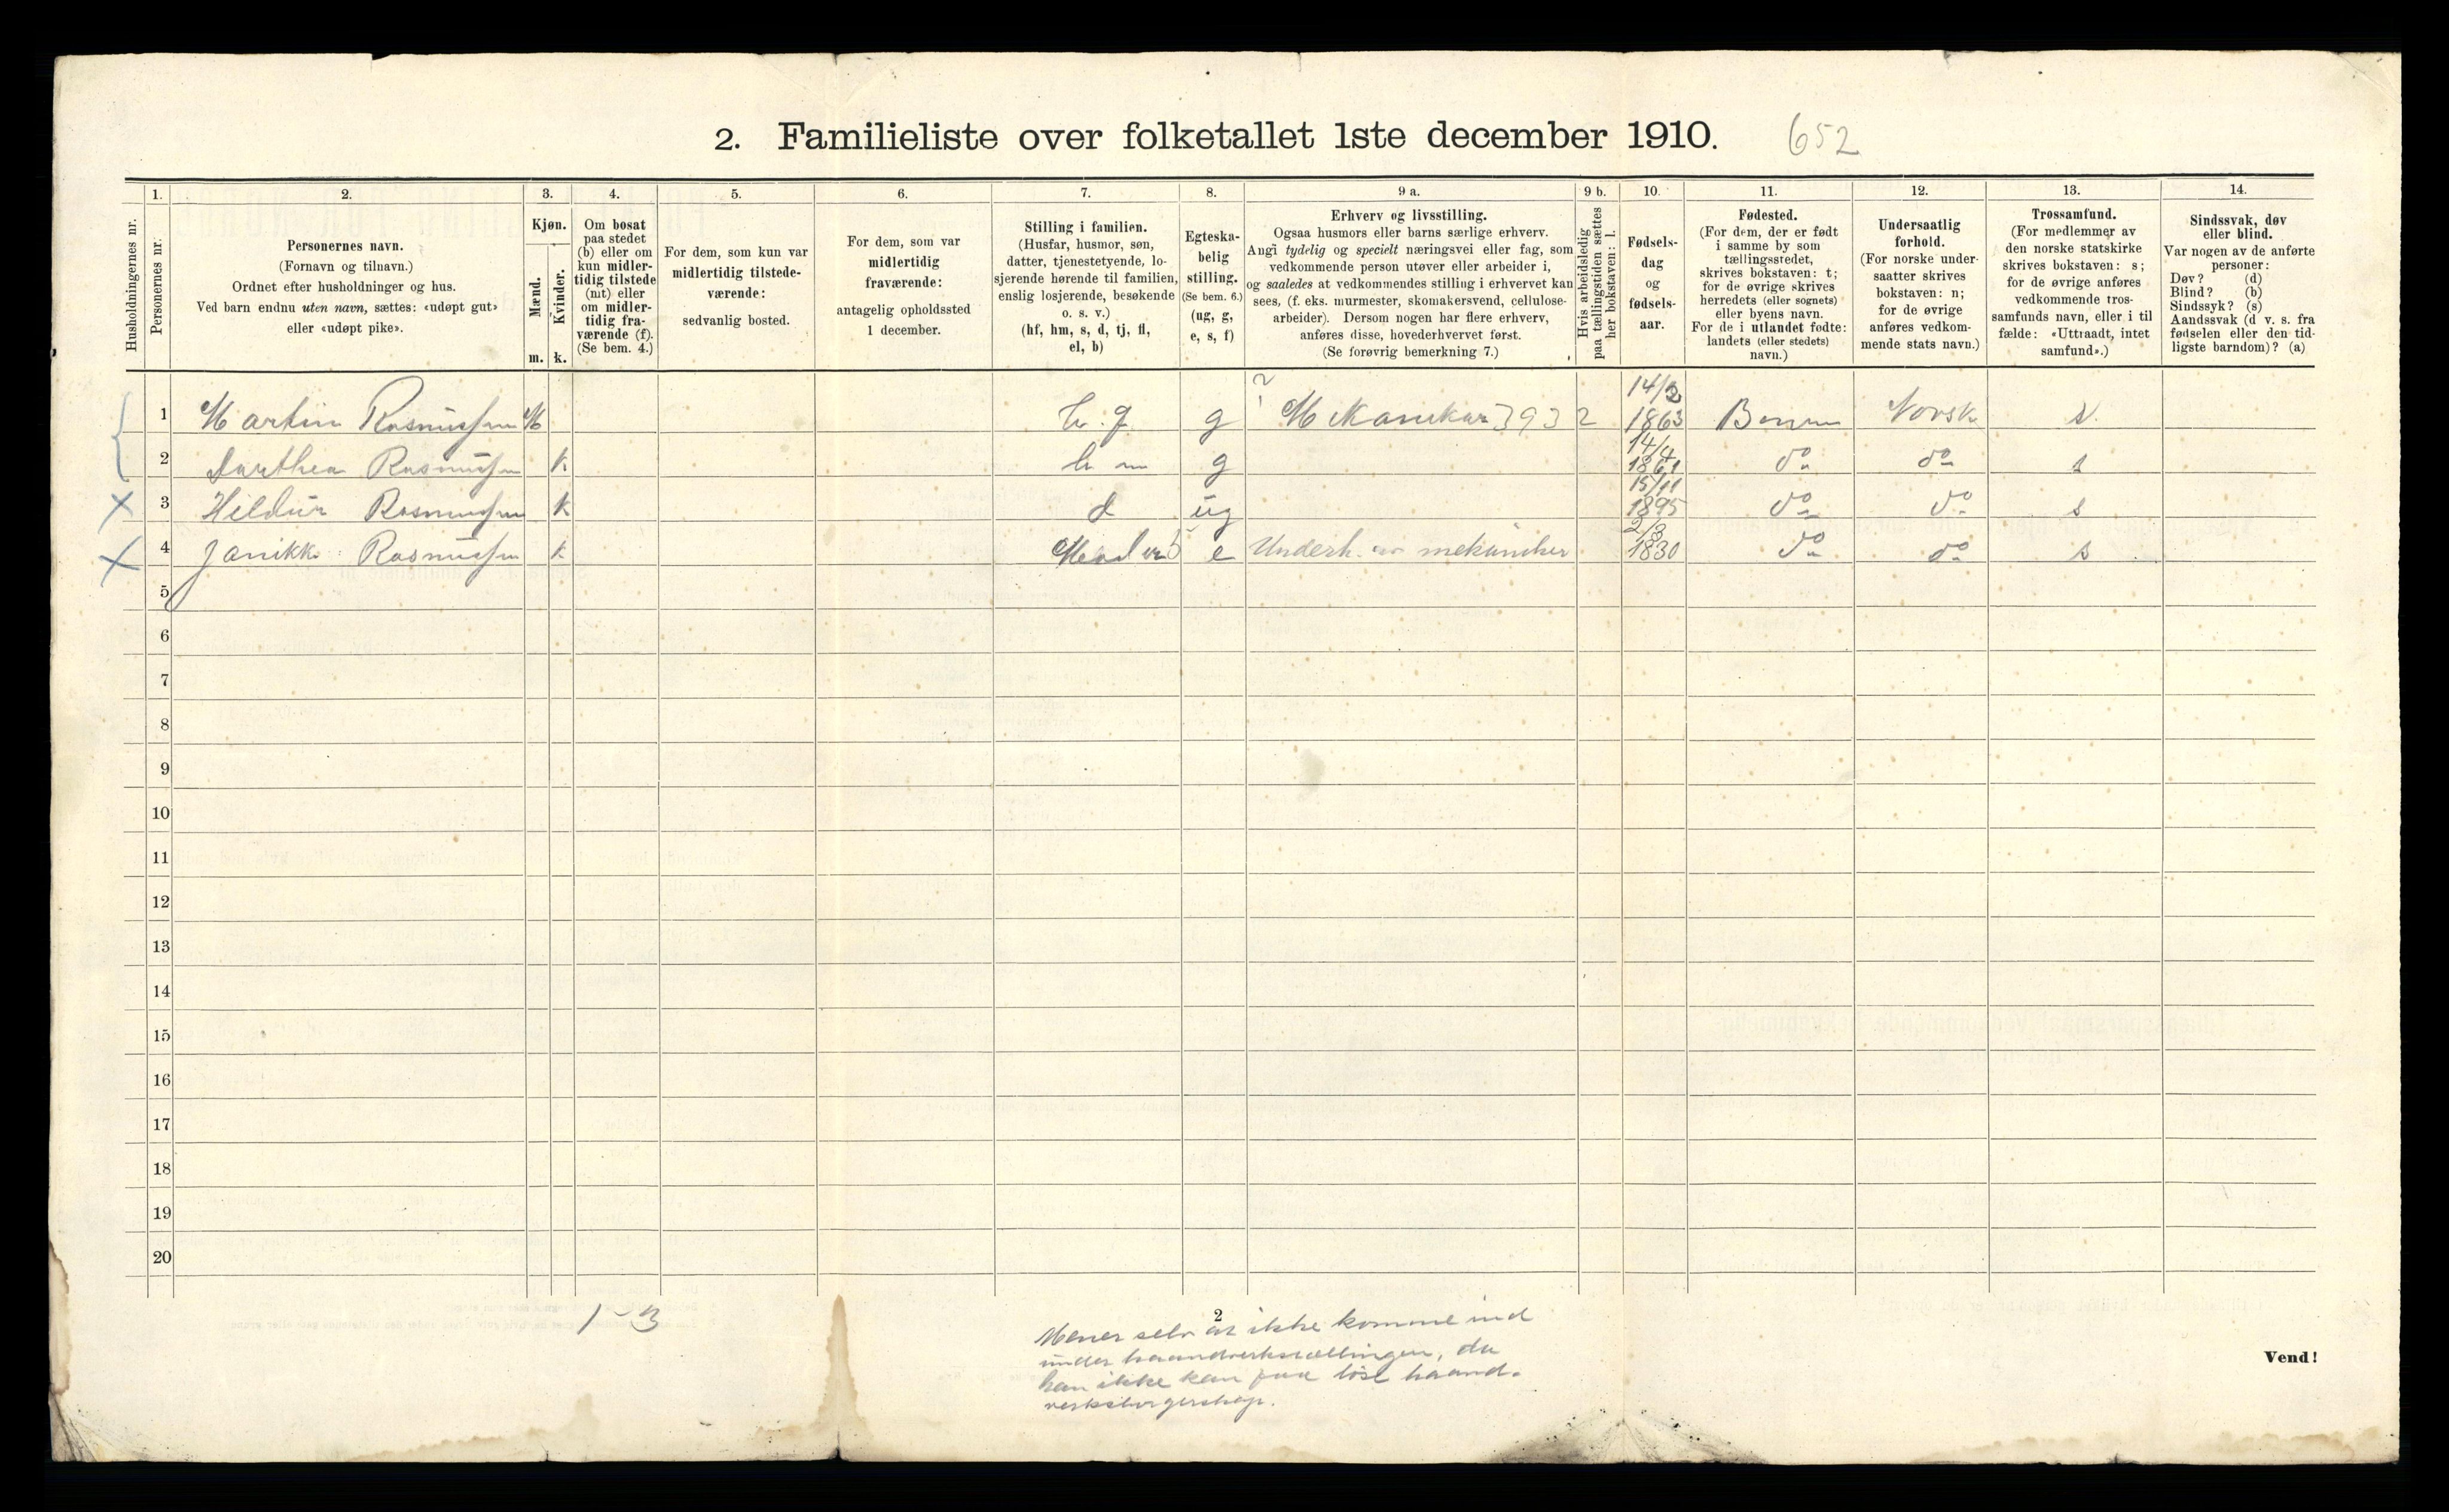 2. Familieliste over folketallet 1ste december 1910. 652
Husholdningernes nr.
1.
Personernes nr.
2.
Personernes navn.
(Fornavn og tilnavn.)
Ordnet efter husholdninger og hus.
Ved barn endnu uten navn, sættes: «udøpt gut»
eller «udøpt pike».
3.
Kjøn.
Mænd.
Kvinder.
m. k.
4.
Om bosat
paa stedet
(b) eller om
kun midler-
tidig tilstede
(mt) eller
om midler-
tidig fra-
værende (f).
(Se bem. 4.)
5.
For dem, som kun var
midlertidig tilstede-
værende:
sedvanlig bosted.
6.
For dem, som var
midlertidig
fraværende:
antagelig opholdssted
1 december.
7.
Stilling i familien.
(Husfar, husmor, søn,
datter, tjenestetyende, lo-
sjerende hørende til familien,
enslig losjerende, besøkende
o. s. v.)
(hf, hm, s, d, tj, fl,
el, b)
8.
Egteska-
belig
stilling.
(Se bem. 6.)
(ug, g,
e, s, f)
9 a.
Erhverv og livsstilling.
Ogsaa husmors eller barns særlige erhverv.
Angi tydelig og specielt næringsvei eller fag, som
vedkommende person utøver eller arbeider i,
og saaledes at vedkommendes stilling i erhvervet kan
sees, (f. eks. murmester, skomakersvend, cellulose-
arbeider). Dersom nogen har flere erhverv,
anføres disse, hovederhvervet først.
(Se forøvrig bemerkning 7.)
9 b.
Hvis arbeidsledig
paa tællingstiden sættes
her bokstaven: l.
10.
Fødsels-
dag
og
fødsels-
aar.
11.
Fødested.
(For dem, der er født
i samme by som
tællingsstedet,
skrives bokstaven: t;
for de øvrige skrives
herredets (eller sognets)
eller byens navn.
For de i utlandet fødte:
landets (eller stedets)
navn.)
12.
Undersaatlig
forhold.
(For norske under-
saatter skrives
bokstaven: n;
for de øvrige
anføres vedkom-
mende stats navn.)
13.
Trossamfund.
(For medlemmer av
den norske statskirke
skrives bokstaven: s;
for de øvrige anføres
vedkommende tros-
samfunds navn, eller i til
fælde: «Uttraadt, intet
samfund».)
14.
Sindssvak, døv
eller blind.
Var nogen av de anførte
personer:
Døv? (d)
Blind? (b)
Sindssyk? (s)
Aandssvak (d v. s. fra
fødselen eller den tid-
ligste barndom)? (a)
1 Martin Rasmussen M g ? Mekaniker 393 2 1863 Norsk s.
2 Rasmussen k hm g 14/4 1861 do do s
3 Hildur Rasmussen k d ug 15/11 1895 do do s
4 Janikke Rasmussen k e Underh. av mekaniker 2/3 1830 do do s
5
6
7
8
9
10
11
12
13
14
15
16
17
18
19
20
1-3
2
Mener selv at ikke komme ind
under haandverkstællingen, da
han ikke kan faa løst haand-
verksborgerskap.
Vend!